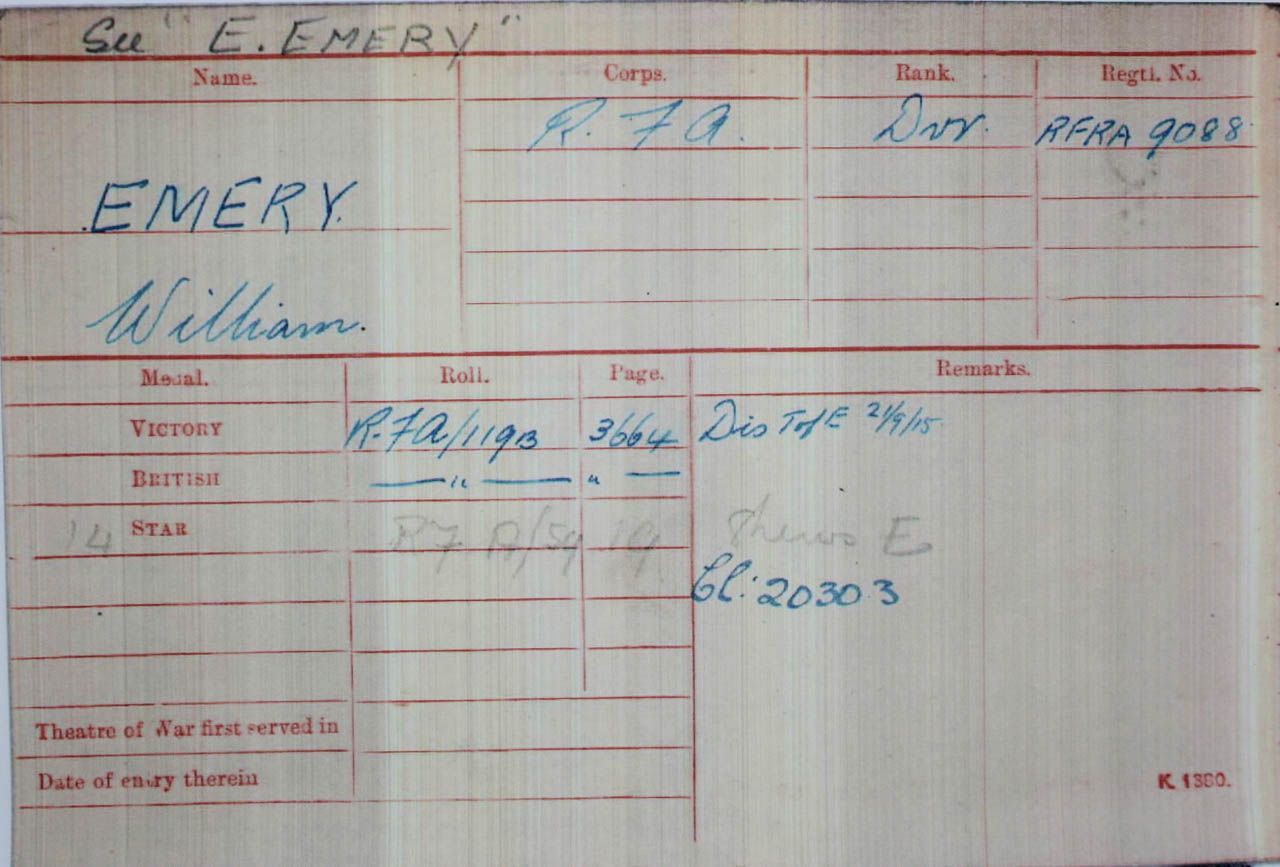 See "E. EMERY"
Name. Corps. Rank. Regtl. No.
R. F A. Dvr. RFRA 9088
EMERY.
William.
Medal. Roll. Page. Remarks.
VICTORY R.F.A/119B 3664 Dis T of E 21/9/15
BRITISH — " — " —
14 STAR RF A/59 19 E
Cl: 20303
Theatre of War first served in
Date of entry therein
K. 1380.